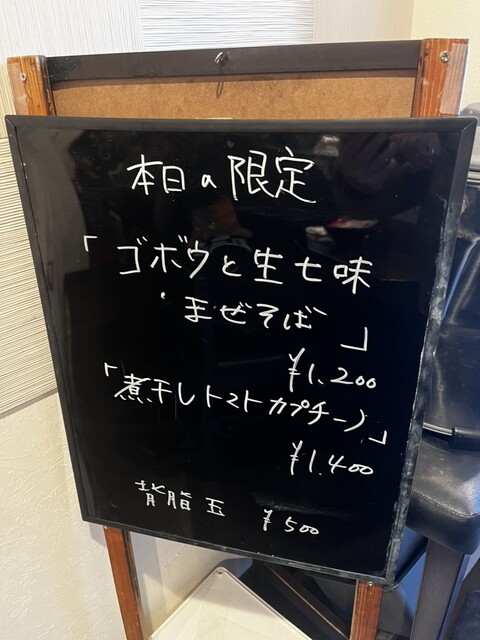 本日の限定
「ゴボウと生七味
まぜそば」
¥1.200
「煮干しトマトカプチーノ」
¥1.400
背脂玉 ¥500